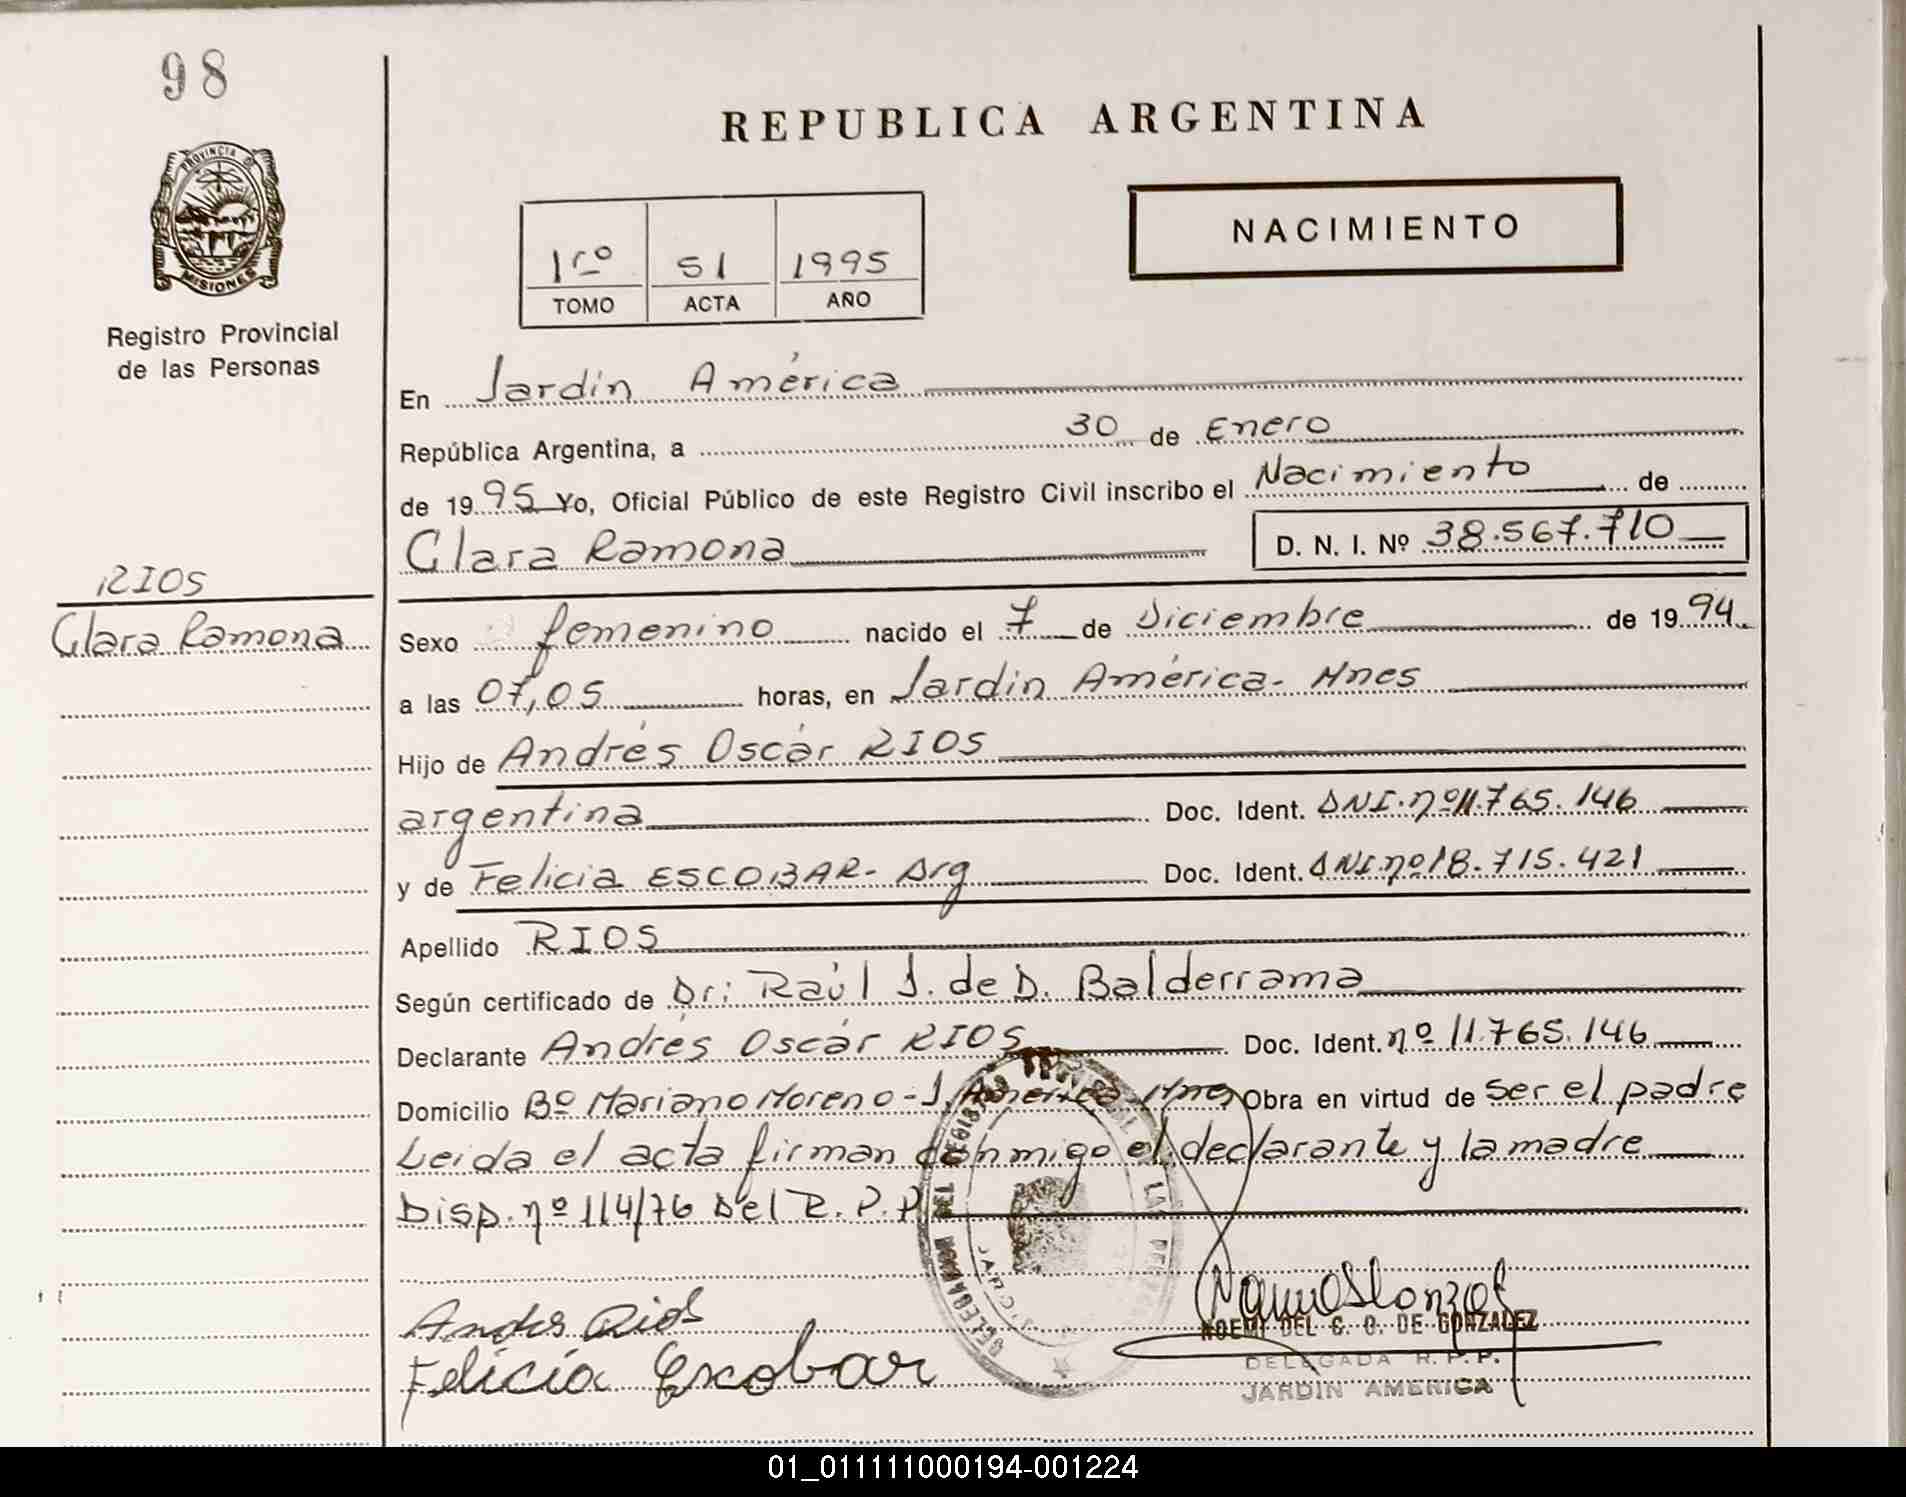 98
PROVINCIA DE
MISIONES
Registro Provincial
de las Personas
RIOS
Clara Ramona
REPUBLICA ARGENTINA
1ro 51 1995
TOMO ACTA AÑO
NACIMIENTO
En Jardín América
República Argentina, a 30 de Enero
de 1995 Yo, Oficial Público de este Registro Civil inscribo el Nacimiento de
Clara Ramona D. N. I. Nº 38.567.710
Sexo femenino nacido el 7 de Diciembre de 1994
a las 07,05 horas, en Jardín América - Mnes
Hijo de Andrés Oscár RIOS
argentina Doc. Ident. DNI. nº 11.765.146
y de Felicia ESCOBAR - Arg Doc. Ident. DNI. nº 18.715.421
Apellido RIOS
Según certificado de Dr: Raúl J. de D. Balderrama
Declarante Andrés Oscár RIOS Doc. Ident. nº 11.765.146
Domicilio Bº Mariano Moreno - J. América Mnes Obra en virtud de ser el padre
Leida el acta firman conmigo el declarante y la madre
Disp. nº 114/76 Del R. P. P.
Andres Rios
Felicia Escobar
NOEMI DEL C. O. DE GONZALEZ
DELEGADA R. P. P.
JARDIN AMERICA
01_011111000194-001224